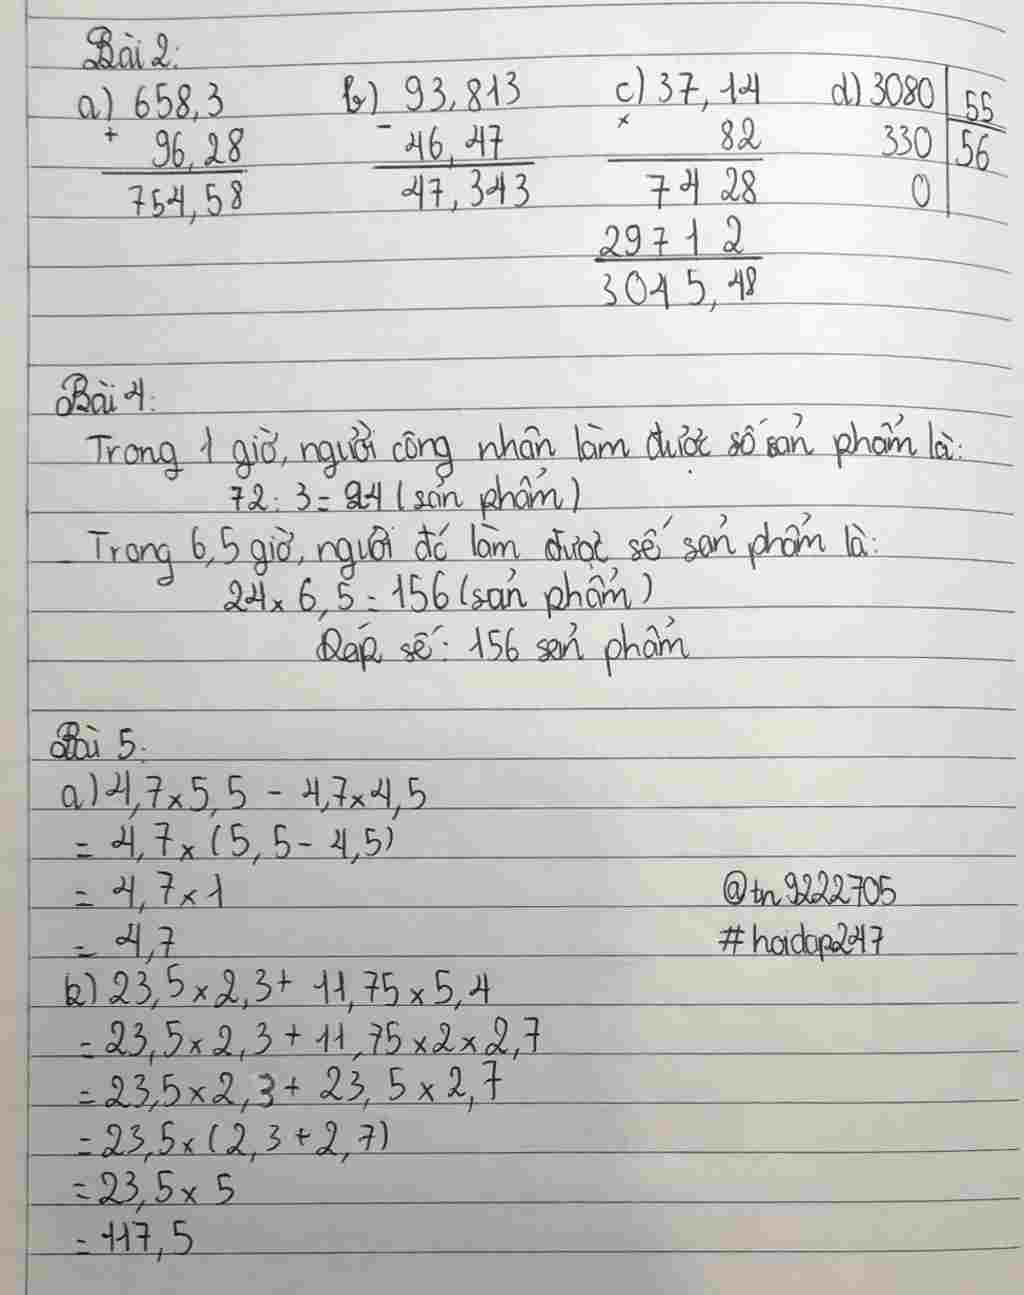 Bài 2:
a) 658,3 b) 93,813 c) 37,14 d) 3080 55
+ 96,28 - 46,47 × 82 330 56
754,58 47,343 74 28 0
297 1 2
3045,48
Bài 4:
Trong 1 giờ, người công nhân làm được số sản phẩm là:
72 : 3 = 24 (sản phẩm)
Trong 6,5 giờ, người đó làm được số sản phẩm là:
24 × 6,5 = 156 (sản phẩm)
Đáp số: 156 sản phẩm
Bài 5:
a) 4,7 × 5,5 - 4,7 × 4,5
= 4,7 × (5,5 - 4,5)
= 4,7 × 1
@tn9222705
= 4,7
#hoidap247
b) 23,5 × 2,3 + 11,75 × 5,4
= 23,5 × 2,3 + 11,75 × 2 × 2,7
= 23,5 × 2,3 + 23,5 × 2,7
= 23,5 × (2,3 + 2,7)
= 23,5 × 5
= 117,5